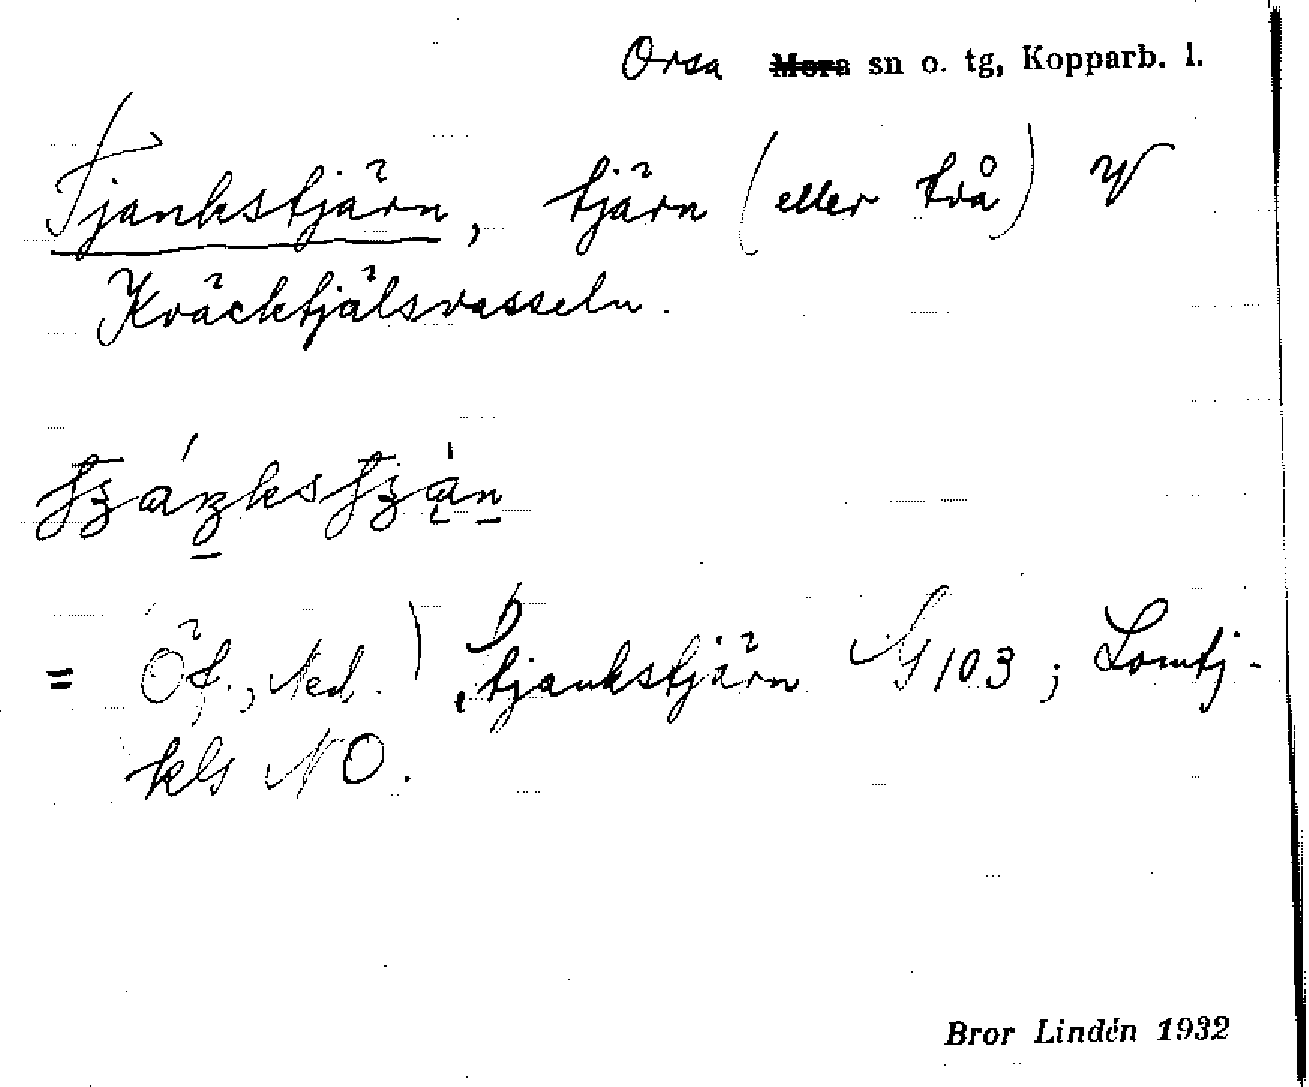 Orsa Mora sn o. tg, Kopparb. l.
Tjankstjärn, tjärn (eller två) V
Kväcktjälsvasseln.
= Öf., Ned. Stjankstjärn G 103; Lomtj-
kls NO.
Bror Lindén 1932